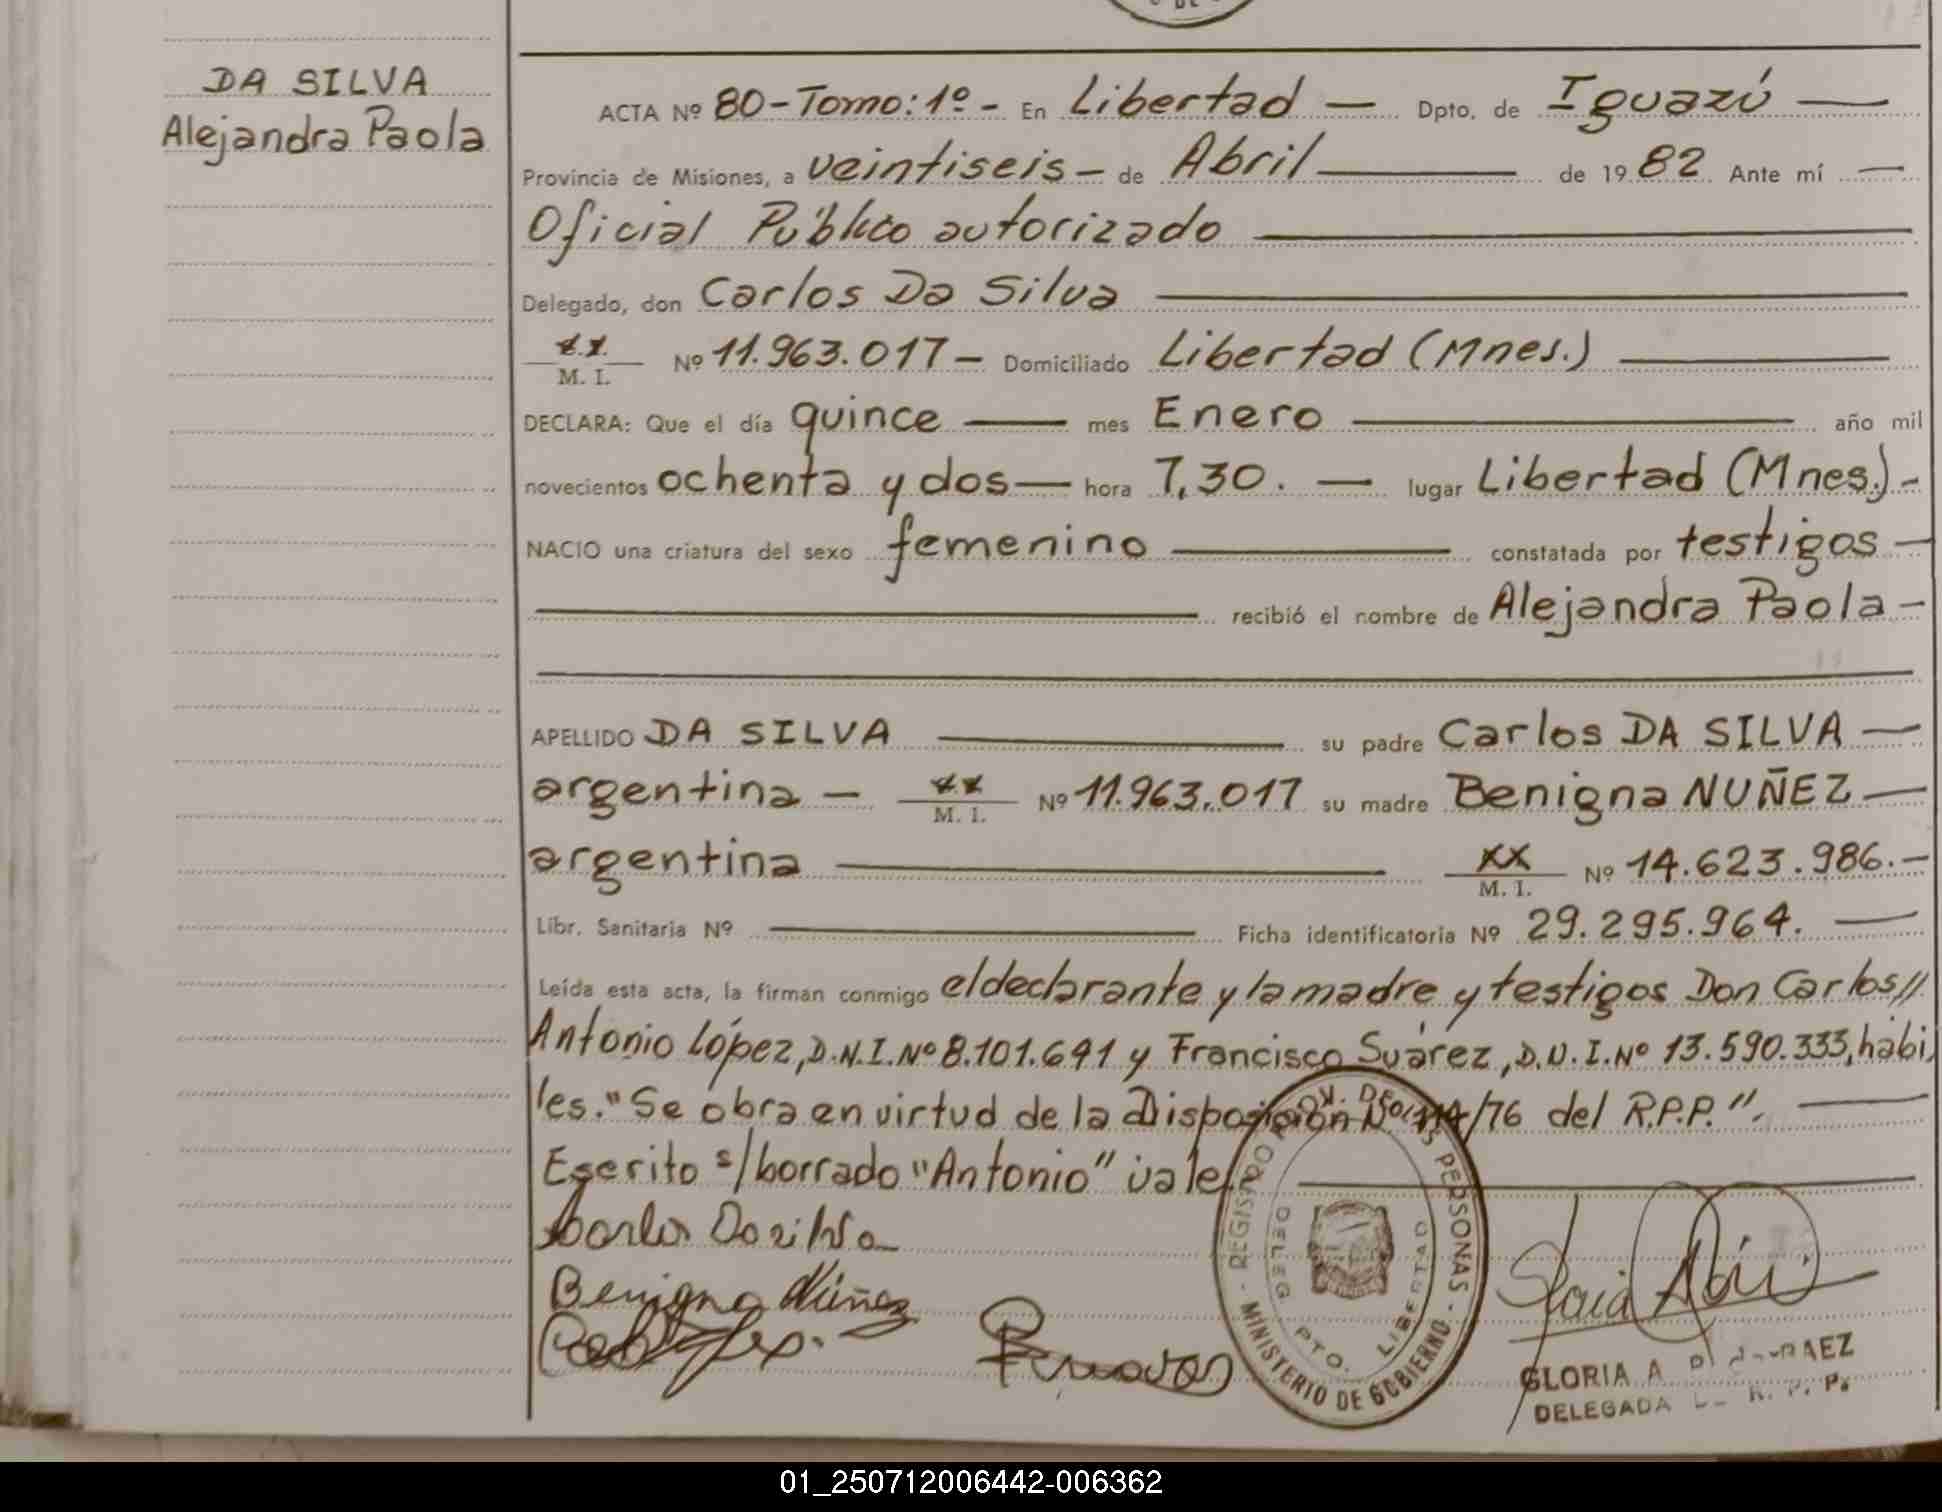 DE
DA SILVA
Alejandra Paola
ACTA Nº 80-Tomo: 1º - En Libertad — Dpto. de Iguazú —
Provincia de Misiones, a veintiseis — de Abril — de 1982 Ante mí —
Oficial Público autorizado —
Delegado, don Carlos Da Silva —
xx
M. I. Nº 11.963.017 — Domiciliado Libertad (Mnes.) —
DECLARA: Que el día quince — mes Enero — año mil
novecientos ochenta y dos — hora 7,30. — lugar Libertad (Mnes.) -
NACIO una criatura del sexo femenino — constatada por testigos —
— recibió el nombre de Alejandra Paola —
APELLIDO DA SILVA — su padre Carlos DA SILVA —
argentina — xx M. I. Nº 11.963.017 su madre Benigna NUÑEZ —
argentina — xx M. I. Nº 14.623.986. —
Libr. Sanitaria Nº — Ficha identificatoria Nº 29.295.964. —
Leída esta acta, la firman conmigo el declarante y la madre y testigos Don Carlos//
Antonio López, D.N.I. Nº 8.101.691 y Francisco Suárez, D.N.I. Nº 13.590.333, hábi
les. "Se obra en virtud de la Disposición Nº 114/76 del R.P.P.". —
Escrito s/borrado "Antonio" vale. —
Carlos Da Silva
Benigna Núñez
REGISTRO PROV. DE LAS PERSONAS - MINISTERIO DE GOBIERNO -
DELEG. PTO. LIBERTAD
GLORIA A
DELEGADA R. P. P.
01_250712006442-006362